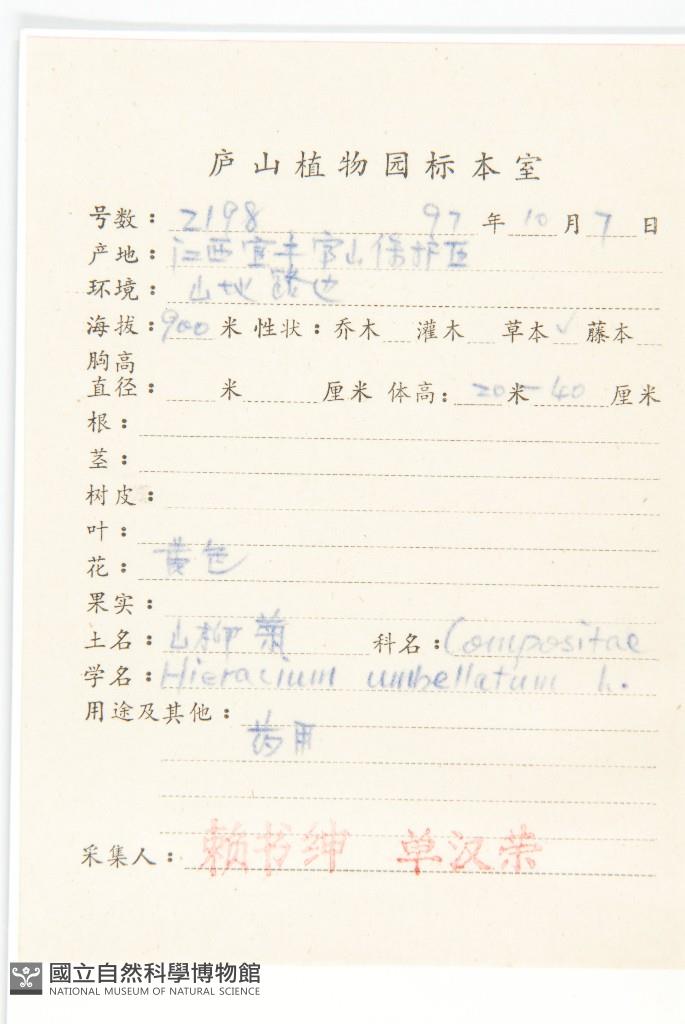 庐山植物园标本室
号数：2198 97年10月7日
产地：江西宜丰官山保护区
环境：山地路边
海拔：900米 性状：乔木 灌木 草本✓ 藤本
胸高
直径： 米 厘米 体高：20米-40厘米
根：
茎：
树皮：
叶：
花：黄色
果实：
土名：山柳菊 科名：Compositae
学名：Hieracium umbellatum L.
用途及其他：
药用
采集人：赖书绅 单汉荣
國立自然科學博物館
NATIONAL MUSEUM OF NATURAL SCIENCE